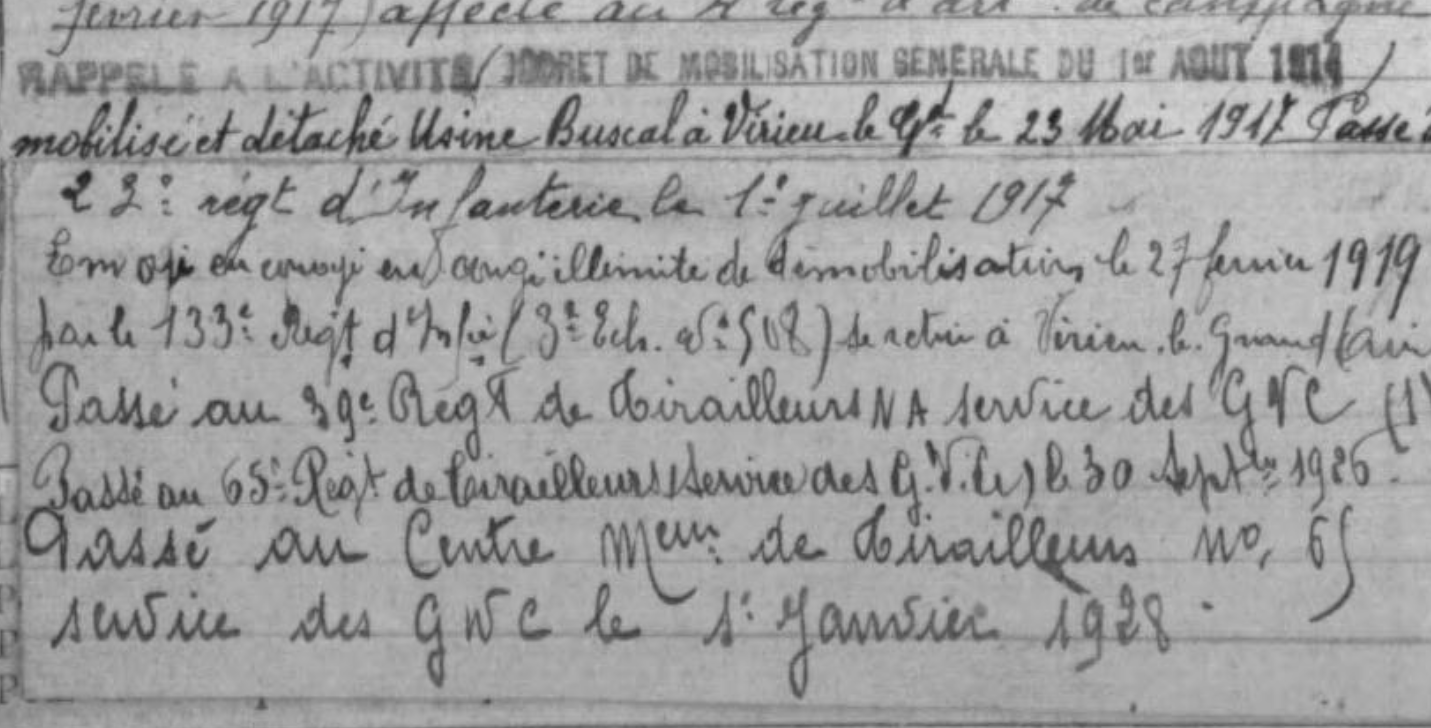 février 1917) affecté au 4 rég t d'art. de campagne
RAPPELÉ A L'ACTIVITÉ (DÉCRET DE MOBILISATION GÉNÉRALE DU 1er AOUT 1914)
mobilisé et détaché Usine Buscal à Virieu-le-Gd le 23 Mai 1917 Passé
23e régt d'Infanterie le 1er juillet 1917
en congé illimité de démobilisation le 27 fevrier 1919
par le 133e Régt d'Infie (3e Ech. No 508) se retire à Virieu-le-Grand (Ain
Passé au 39e Régt de Tirailleurs NA service des GVC (1)
Passé au 65e Régt de Tirailleurs (service des G.V.C.) le 30 Septbre 1926.
Passé au Centre Meur de Tirailleurs no, 65
service des GVC le 1er Janvier 1928.